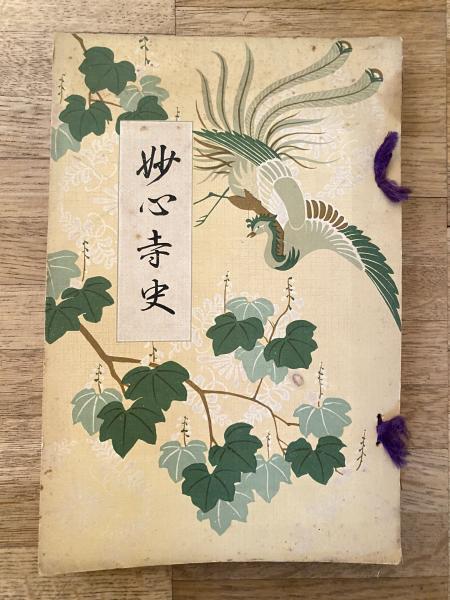 妙心寺史